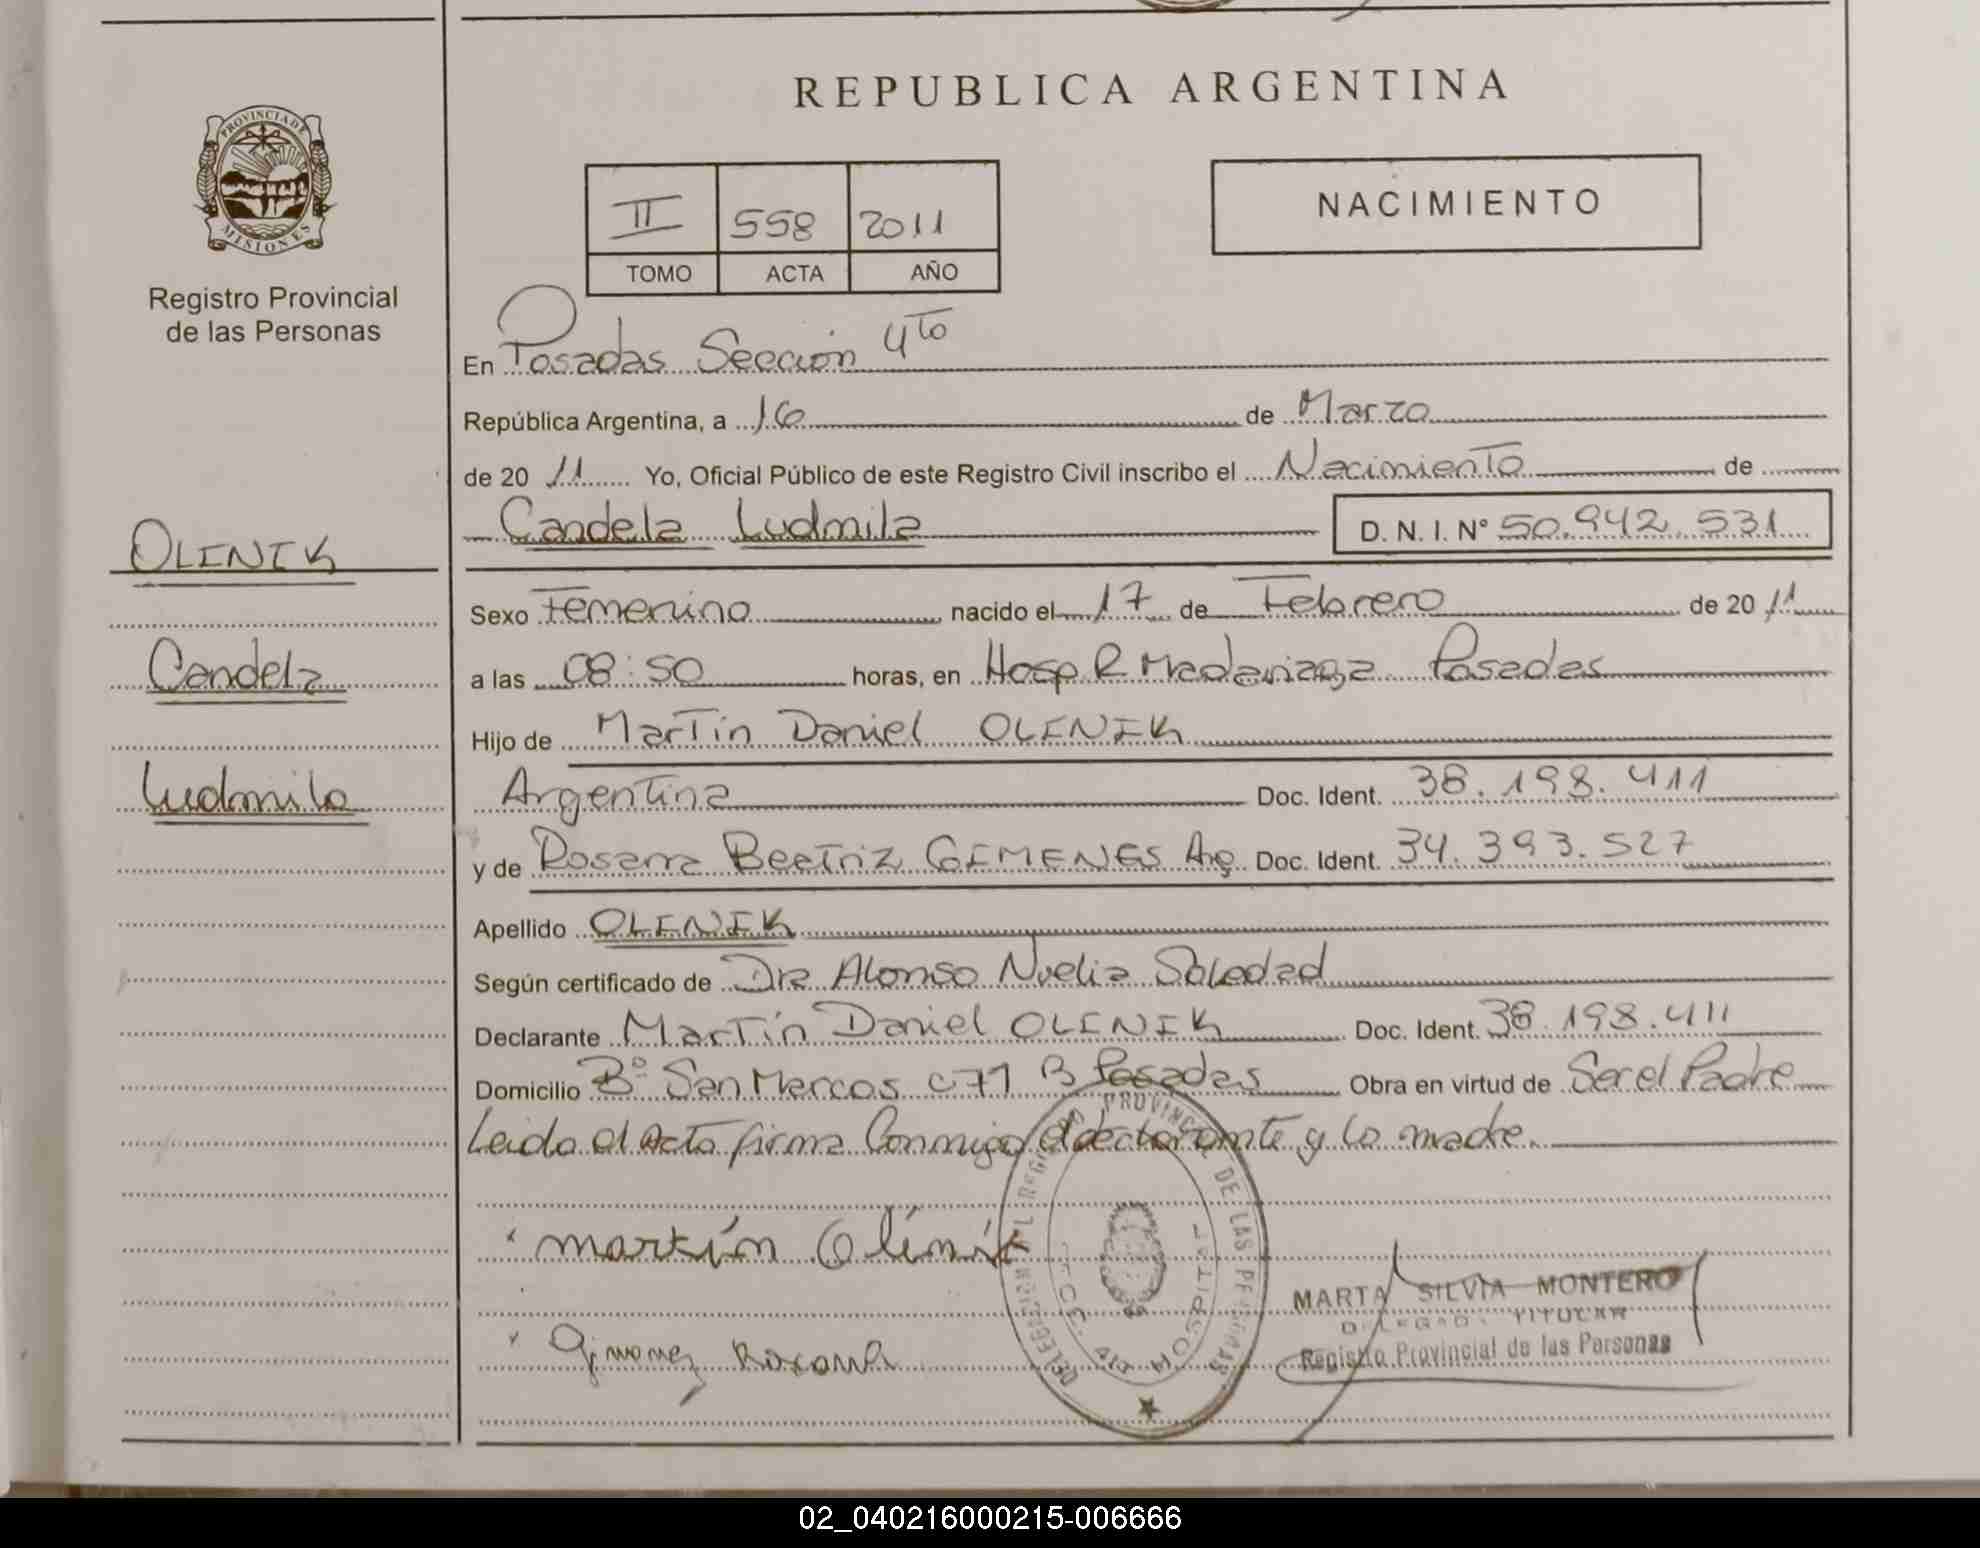 REPUBLICA ARGENTINA
PROVINCIA DE MISIONES
Registro Provincial
de las Personas
II 558 2011
TOMO ACTA AÑO
NACIMIENTO
En Posadas Sección 4to
República Argentina, a 16 de Marzo
de 20 11 Yo, Oficial Público de este Registro Civil inscribo el Nacimiento de
Candela Ludmila D. N. I. N° 50.942.531
OLINIK
Candela
Ludmila
Sexo Femenino nacido el 17 de Febrero de 20 11
a las 08:50 horas, en Hosp R Madariaga Posadas
Hijo de Martin Daniel OLINIK
Argentina Doc. Ident. 38.198.411
y de Beatriz GIMENES Arg Doc. Ident. 34.393.527
Apellido OLINIK
Según certificado de Dra Alonso Noelia Soledad
Declarante Martin Daniel OLINIK Doc. Ident. 38.198.411
Domicilio B° San Marcos c 71 B Posadas Obra en virtud de Ser el Padre
Leida el Acta firma Conmigo el declarante y la madre
martín Olinik
Gimenez Roxana
DELEGACION REGISTRO PROVINCIAL DE LAS PERSONAS
HOSPITAL
MARTA SILVIA MONTERO
DELEGADA TITULAR
Registro Provincial de las Personas
02_040216000215-006666